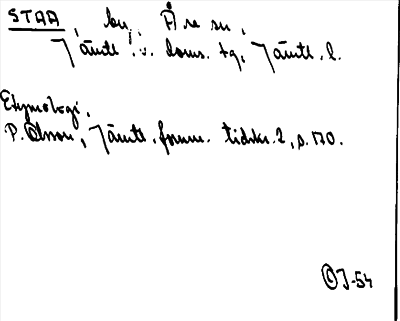 STAA, by, Åre sn,
Jämtl. v. doms. tg, Jämtl. l.
Etymologi.
P. Olsson, Jämtl. fornm. tidskr. 2, s. 170.
J-54